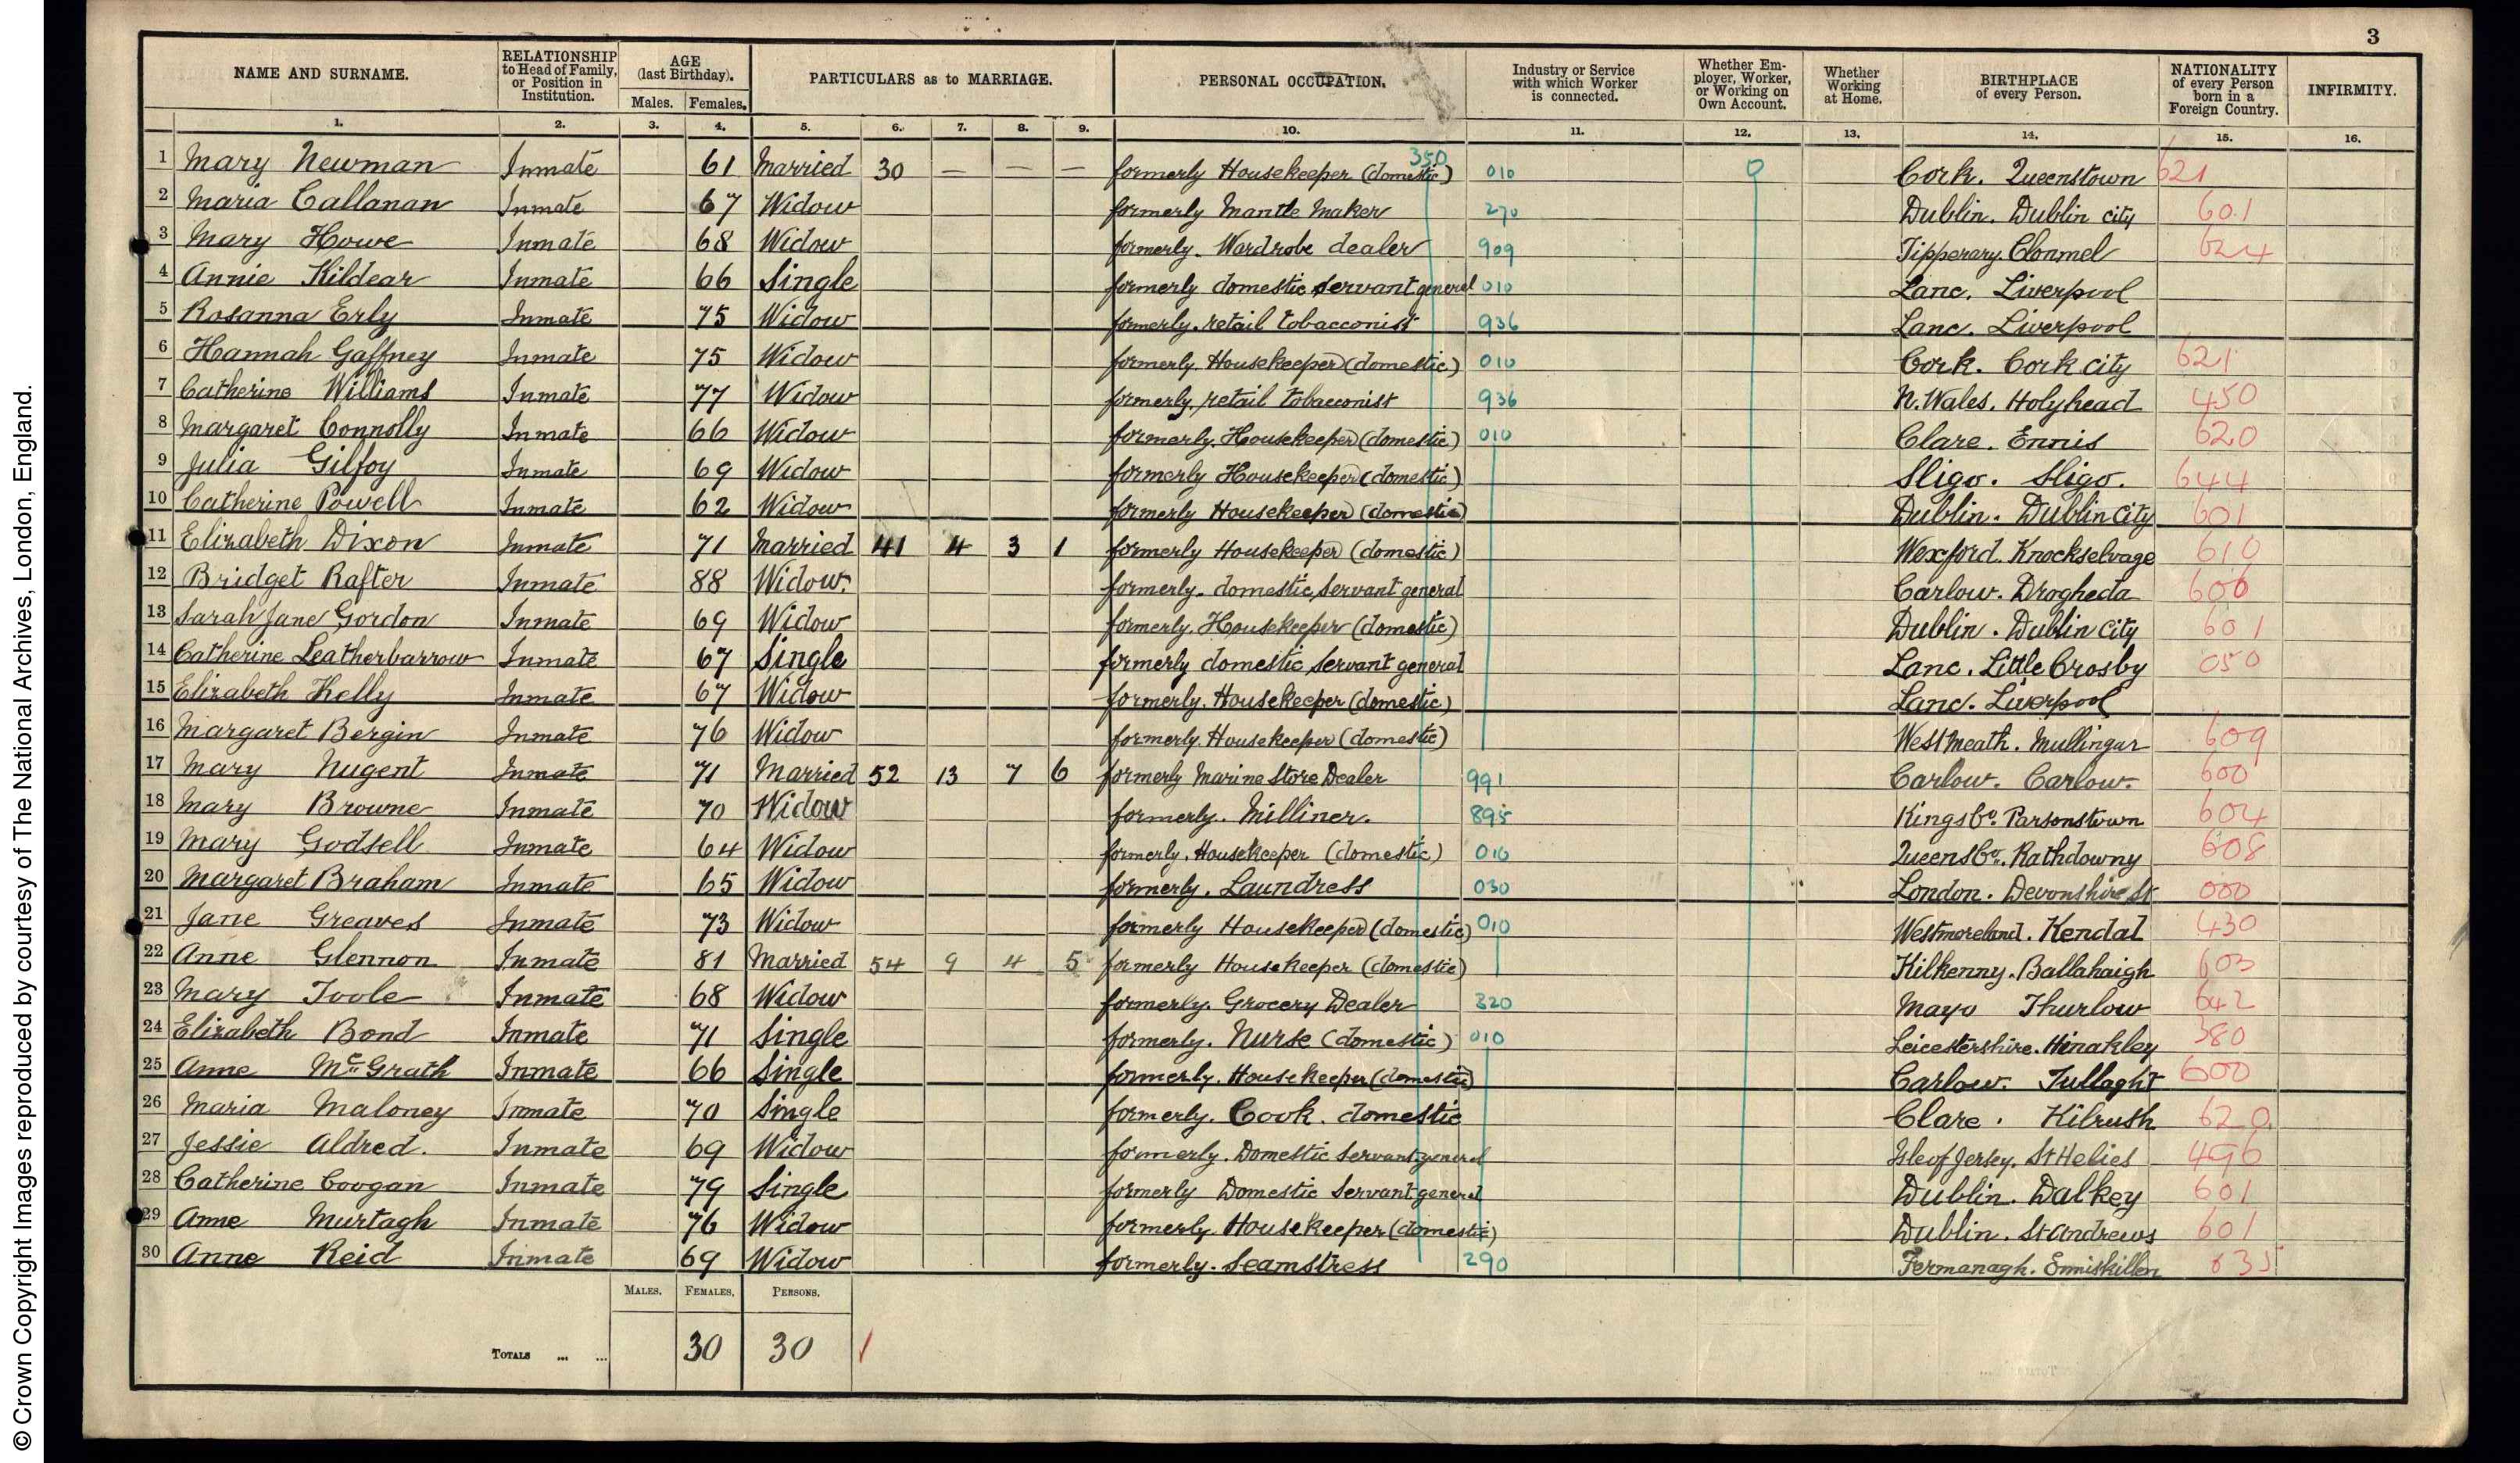 3
NAME AND SURNAME. RELATIONSHIP to Head of Family, or Position in Institution. AGE (last Birthday). Males. Females. PARTICULARS as to MARRIAGE. PERSONAL OCCUPATION. Industry or Service with which Worker is connected. Whether Employer, Worker, or Working on Own Account. Whether Working at Home. BIRTHPLACE of every Person. NATIONALITY of every Person born in a Foreign Country. INFIRMITY.
1. 2. 3. 4. 5. 6. 7. 8. 9. 10. 11. 12. 13. 14. 15. 16.
1 Mary Newman Inmate 61 Married 30 — — — formerly Housekeeper (domestic) 350 010 0 Cork. Queenstown 621
2 Maria Callanan Inmate 67 Widow formerly Mantle Maker 270 Dublin. Dublin city 601
3 Mary Howe Inmate 68 Widow formerly. Wardrobe dealer 909 Tipperary. Clonmel 624
4 Annie Kildear Inmate 66 Single formerly domestic servant general 010 Lanc. Liverpool
5 Rosanna Erly Inmate 75 Widow formerly. retail tobacconist 936 Lanc. Liverpool
6 Hannah Gaffney Inmate 75 Widow formerly. Housekeeper (domestic) 010 Cork. Cork city 621
7 Catherine Williams Inmate 77 Widow formerly. retail tobacconist 936 N. Wales. Holyhead 450
8 Margaret Connolly Inmate 66 Widow formerly. Housekeeper (domestic) 010 Clare. Ennis 620
9 Julia Gilfoy Inmate 69 Widow formerly Housekeeper (domestic) Sligo. Sligo. 644
10 Catherine Powell Inmate 62 Widow formerly Housekeeper (domestic) Dublin. Dublin City 601
11 Elizabeth Dixon Inmate 71 Married 41 4 3 1 formerly Housekeeper (domestic) Wexford. Knockselvage 610
12 Bridget Rafter Inmate 88 Widow. formerly. domestic servant general Carlow. Drogheda 606
13 Sarah Jane Gordon Inmate 69 Widow formerly. Housekeeper (domestic) Dublin. Dublin City 601
14 Catherine Leatherbarrow Inmate 67 Single formerly domestic servant general Lanc. Little Crosby 050
15 Elizabeth Kelly Inmate 67 Widow formerly. Housekeeper (domestic) Lanc. Liverpool
16 Margaret Bergin Inmate 76 Widow formerly. Housekeeper (domestic) Westmeath. Mullingar 609
17 Mary Nugent Inmate 71 Married 52 13 7 6 formerly Marine Store Dealer 991 Carlow. Carlow. 600
18 Mary Browne Inmate 70 Widow formerly. Milliner. 895 Kings Co. Parsonstown 604
19 Mary Godsell Inmate 64 Widow formerly. Housekeeper (domestic) 010 Queens Co. Rathdowny 608
20 Margaret Braham Inmate 65 Widow formerly. Laundress 030 London. Devonshire St 000
21 Jane Greaves Inmate 73 Widow formerly Housekeeper (domestic) 010 Westmoreland. Kendal 430
22 Anne Glennon Inmate 81 Married 54 9 4 5 formerly Housekeeper (domestic) Kilkenny. Ballahaigh 603
23 Mary Toole Inmate 68 Widow formerly. Grocery Dealer 820 Mayo Thurlow 642
24 Elizabeth Bond Inmate 71 Single formerly. Nurse (domestic) 010 Leicestershire. Hinakley 380
25 Anne McGrath Inmate 66 Single formerly. Housekeeper (domestic) Carlow. Tullaght 600
26 Maria Maloney Inmate 70 Single formerly. Cook. domestic Clare. Kilrush 620
27 Jessie Aldred. Inmate 69 Widow formerly. Domestic Servant general Isle of Jersey. St Helies 496
28 Catherine Coogan Inmate 79 Single formerly Domestic Servant general Dublin. Dalkey 601
29 Anne Murtagh Inmate 76 Widow formerly. Housekeeper (domestic) Dublin. St Andrews 601
30 Anne Reid Inmate 69 Widow formerly. Seamstress 290 Fermanagh. Enniskillen 635
MALES. FEMALES. PERSONS.
TOTALS ... ... 30 30
© Crown Copyright Images reproduced by courtesy of The National Archives, London, England.